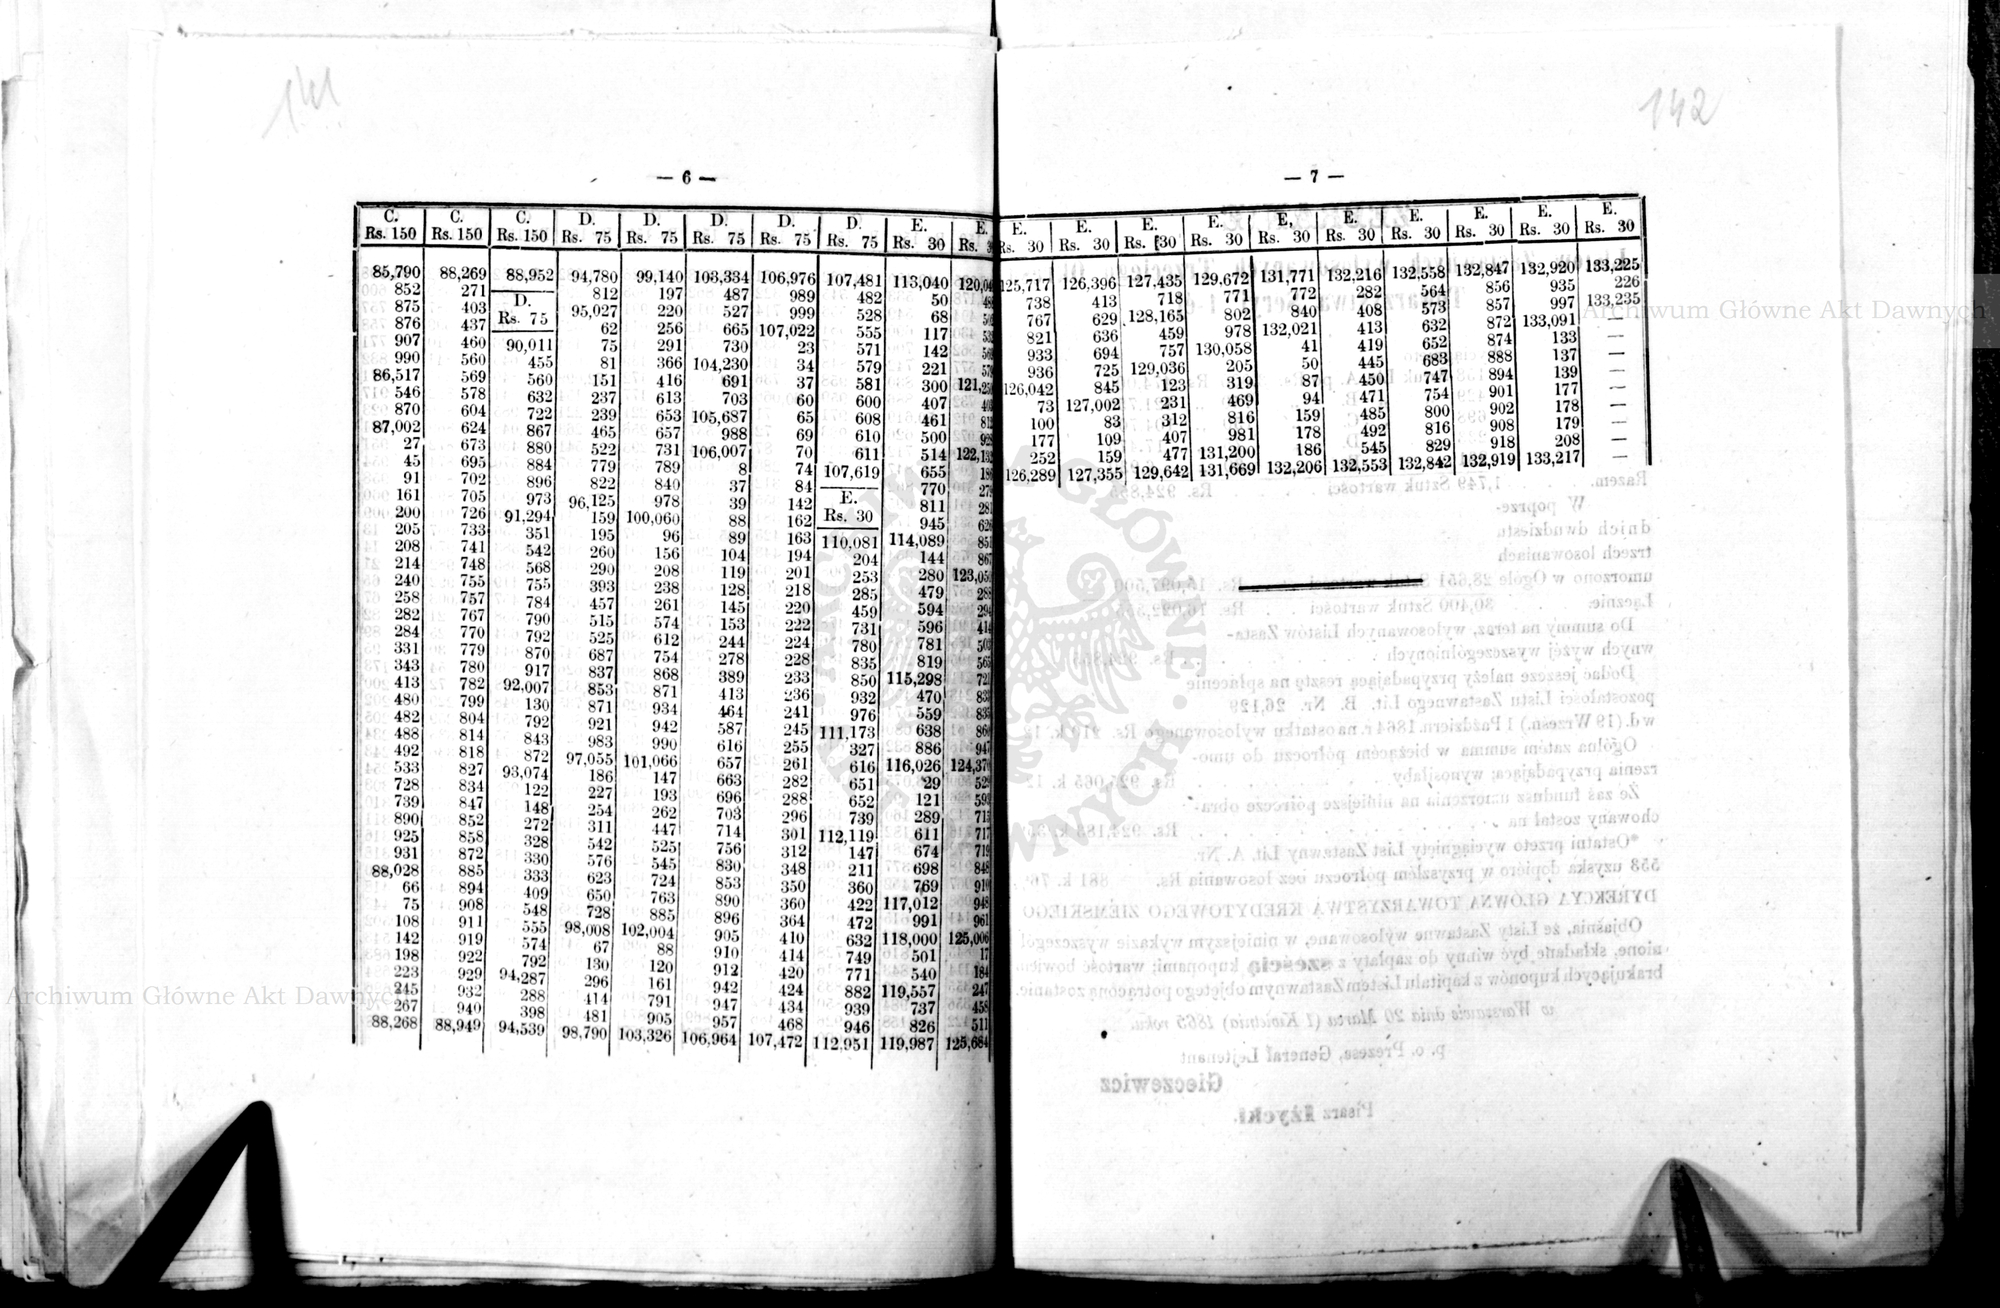 141
142
— 6 —
C. C. C. D. D. D. D. D. E. E.
Rs. 150 Rs. 150 Rs. 150 Rs. 75 Rs. 75 Rs. 75 Rs. 75 Rs. 75 Rs. 30 Rs.
85,790 88,269 88,952 94,780 99,140 103,334 106,976 107,481 113,040
852 271 D. 812 197 487 989 482 50
875 403 Rs. 75 95,027 220 527 999 528 68
876 437 62 256 665 107,022 555 117
907 460 90,011 75 291 730 23 571 142
990 560 455 81 366 104,230 34 579 221
86,517 569 560 151 416 691 37 581 300
546 578 632 237 613 703 60 600 407
870 604 722 239 653 105,687 65 608 461
87,002 624 867 465 657 988 69 610 500
27 673 880 522 731 106,007 70 611 514
45 695 884 779 789 8 74 107,619 655
91 702 896 822 840 37 84 E. 770
161 705 973 96,125 978 39 142 Rs. 30 811
200 726 91,294 159 100,060 88 162 945
205 733 351 195 96 89 163 110,081 114,089
208 741 542 260 156 104 194 204 144
214 748 568 290 208 119 201 253 280
240 755 755 393 238 128 218 285 479
258 757 784 457 261 145 220 459 594
282 767 790 515 574 153 222 731 596
284 770 792 525 612 244 224 780 781
331 779 870 687 754 278 228 835 819
343 780 917 837 868 389 233 850 115,298
413 782 92,007 853 871 413 236 932 470
480 799 130 871 934 464 241 976 559
482 804 792 921 942 587 245 111,173 638
488 814 843 983 990 616 255 327 886
492 818 872 97,055 101,066 657 261 616 116,026
533 827 93,074 186 147 663 282 651 29
728 834 122 227 193 696 288 652 121
739 847 148 254 262 703 296 739 289
890 852 272 311 447 714 301 112,119 611
925 858 328 542 525 756 312 147 674
931 872 330 576 545 830 348 211 698
88,028 885 333 623 724 853 350 360 769
66 894 409 650 763 890 360 422 117,012
75 908 548 728 885 896 364 472 991
108 911 555 98,008 102,004 905 410 632 118,000 125,006
142 919 574 67 88 910 414 749 501 17
198 922 792 130 120 912 420 771 540 184
223 929 94,287 296 161 942 424 882 119,557 247
245 932 288 414 791 947 434 939 737 458
267 940 398 481 905 957 468 946 826 511
88,268 88,949 94,539 98,790 103,326 106,964 107,472 112,951 119,987 125,684
— 7 —
E. E. E. E. E, E. E. E. E. E.
Rs. 30 Rs. 30 Rs. 30 Rs. 30 Rs. 30 Rs. 30 Rs. 30 Rs. 30 Rs. 30 Rs. 30
125,717 126,396 127,435 129,672 131,771 132,216 132,558 132,847 132,920 133,225
738 413 718 771 772 282 564 856 935 226
767 629 128,165 802 840 408 573 857 997 133,235
821 636 459 978 132,021 413 632 872 133,091 —
933 694 757 130,058 41 419 652 874 133 —
936 725 129,036 205 50 445 683 888 137 —
126,042 845 123 319 87 450 747 894 139 —
73 127,002 231 469 94 471 754 901 177 —
100 83 312 816 159 485 800 902 178 —
177 109 407 981 178 492 816 908 179 —
252 159 477 131,200 186 545 829 918 208 —
126,289 127,355 129,642 131,669 132,206 132,553 132,842 132,919 133,217 —
Archiwum Główne Akt Dawnych
Archiwum Główne Akt Dawnych
ARCHIWUM GŁÓWNE AKT DAWNYCH